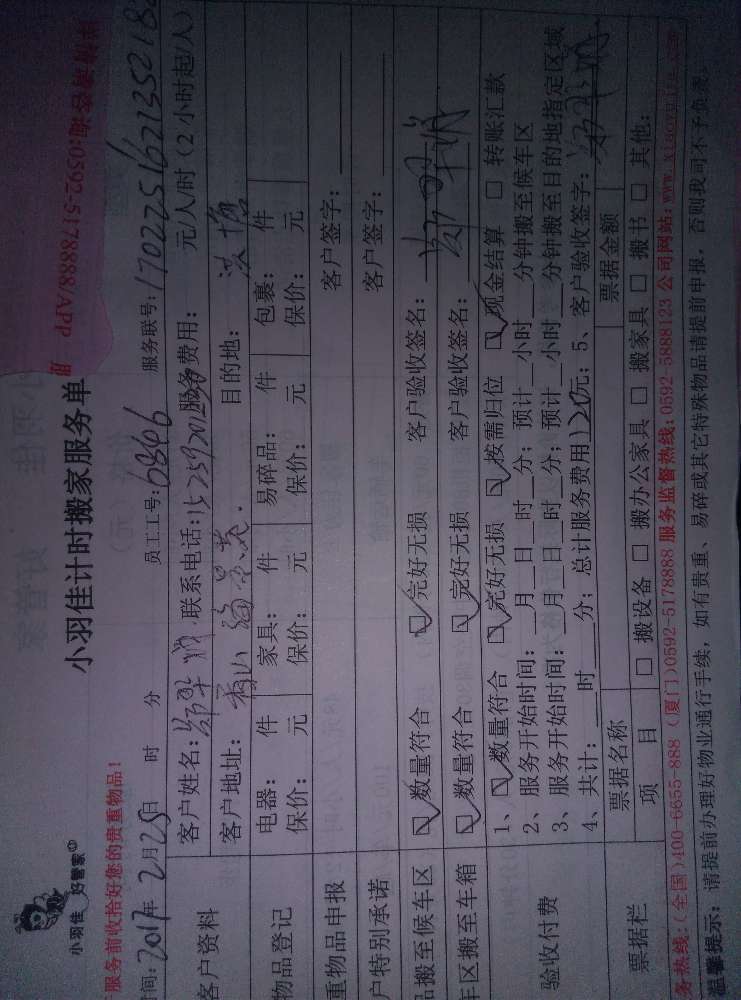 小羽佳 好管家
小羽佳计时搬家服务单
咨询:0592-5178888/APP
服务前收拾好您的贵重物品!
时间: 2017年 2月25日 时 分 员工工号: 6846 服务联号: 170225162135218
客户资料 客户姓名: 联系电话: 服务费用: 元/人/时 (2小时起/人)
客户地址: 香山 目的地:
物品登记 电器: 件 家具: 件 易碎品: 件 包裹: 件
保价: 元 保价: 元 保价: 元 保价: 元
重物品申报 客户签字:
户特别承诺 客户签字:
品搬至候车区 ☑ 数量符合 ☑ 完好无损 客户验收签名:
车区搬至车箱 ☑ 数量符合 ☑ 完好无损 客户验收签名:
验收付费 1、☑ 数量符合 ☑ 完好无损 ☑ 按需归位 ☑ 现金结算 □ 转账汇款
2、服务开始时间: 月 日 时 分; 预计 小时 分钟搬至候车区
3、服务开始时间: 月 日 时 分; 预计 小时 分钟搬至目的地指定区域
4、共计: 时 分; 总计服务费用 120元; 5、客户验收签字:
票据栏 票据名称 票据金额
项 目 □ 搬设备 □ 搬办公家具 □ 搬家具 □ 搬书 □ 其他:
务热线: (全国)400-6655-888 (厦门)0592-5178888 服务监督热线: 0592-5888123 公司网站: www.xiaoyujia.com
温馨提示: 请提前办理好物业通行手续, 如有贵重、易碎或其它特殊物品请提前申报, 否则我司不予负责.